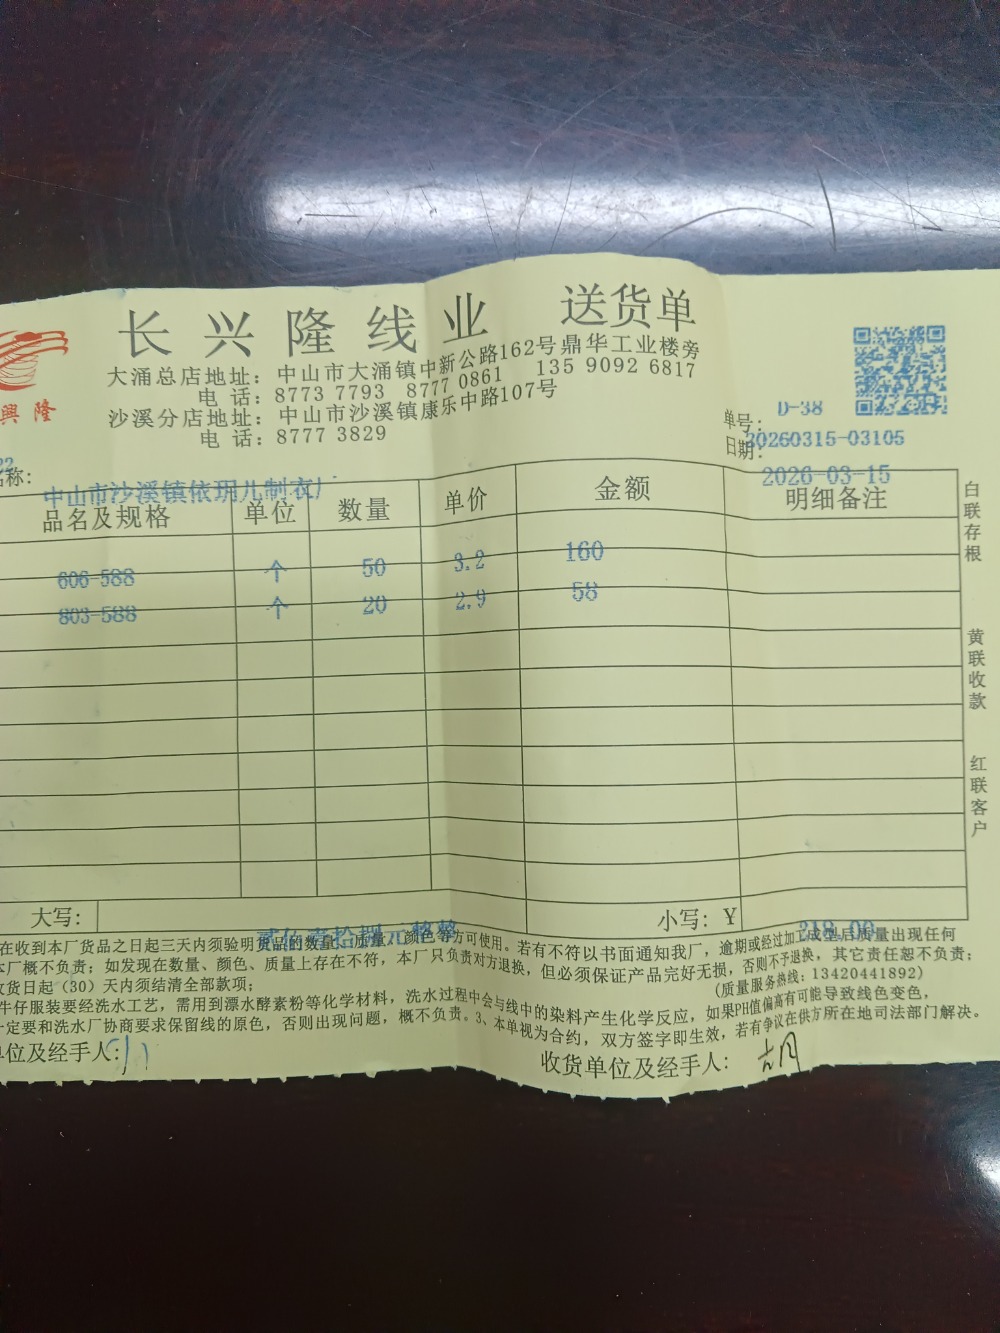 長興隆线业 送货单
興隆
大涌总店地址：中山市大涌镇中新公路162号鼎华工业楼旁
电 话：8773 7793 8777 0861 135 9092 6817
沙溪分店地址：中山市沙溪镇康乐中路107号
电 话：8777 3829
D-38
单号：20260315-03105
日期：2026-03-15
22
名称：中山市沙溪镇依玥儿制衣厂
品名及规格 单位 数量 单价 金额 明细备注
606-588 个 50 3.2 160
803-588 个 20 2.9 58
白联存根
黄联收款
红联客户
大写：贰佰壹拾捌元 小写：￥218.00
在收到本厂货品之日起三天内须验明货品的数量、质量、颜色等方可使用。若有不符以书面通知我厂，逾期或经过加工成型后质量出现任何
本厂概不负责；如发现在数量、颜色、质量上存在不符，本厂只负责对方退换，但必须保证产品完好无损，否则不予退换，其它责任恕不负责；
收货日起（30）天内须结清全部款项；
(质量服务热线：13420441892)
牛仔服装要经洗水工艺，需用到漂水酵素粉等化学材料，洗水过程中会与线中的染料产生化学反应，如果PH值偏高有可能导致线色变色，
定要和洗水厂协商要求保留线的原色，否则出现问题，概不负责。3、本单视为合约，双方签字即生效，若有争议在供方所在地司法部门解决。
单位及经手人：
收货单位及经手人：